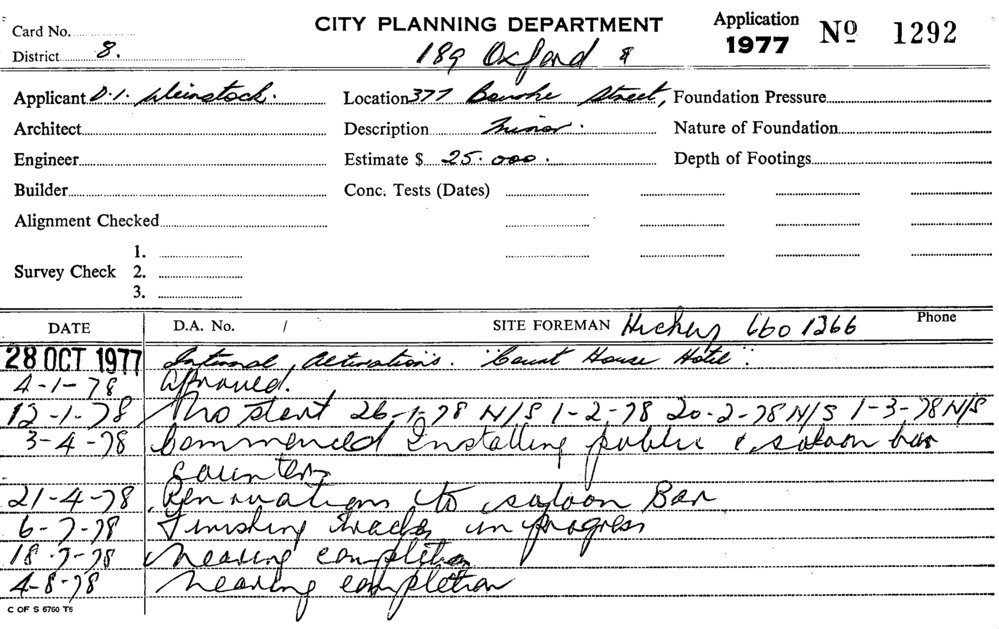 Card No. CITY PLANNING DEPARTMENT Application Nº 1292
District 8. 189 Oxford & 1977
Applicant D.I. Weinstock. Location 377 Bourke Street, Foundation Pressure
Architect Description Minor. Nature of Foundation
Engineer Estimate $ 25.000. Depth of Footings
Builder Conc. Tests (Dates)
Alignment Checked
1.
Survey Check 2.
3.
DATE D.A. No. / SITE FOREMAN Hickey 660 1266 Phone
28 OCT 1977 Internal, Alterations. "Court House Hotel".
4-1-78 Approved.
12-1-78 No start 26-1-78 N/S 1-2-78 20-2-78 N/S 1-3-78 N/S
3-4-78 Commenced Installing public & saloon bar
counters
21-4-78 Renovations to saloon Bar
6-7-78 Finishing trades in progress
18-7-78 nearing completion
4-8-78 nearing completion
C OF S 6760 T6